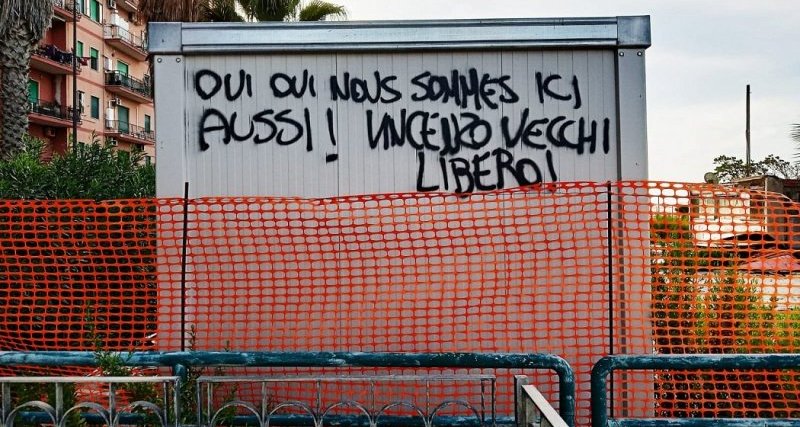 OUI OUI NOUS SOMMES ICI
AUSSI! VINCENZO VECCHI
LIBERO!